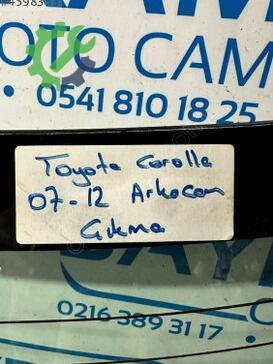 OTO CAM
0541 810 18 25
Toyota Corolla
07-12 Arkacam
Çıkma
0216 389 31 17